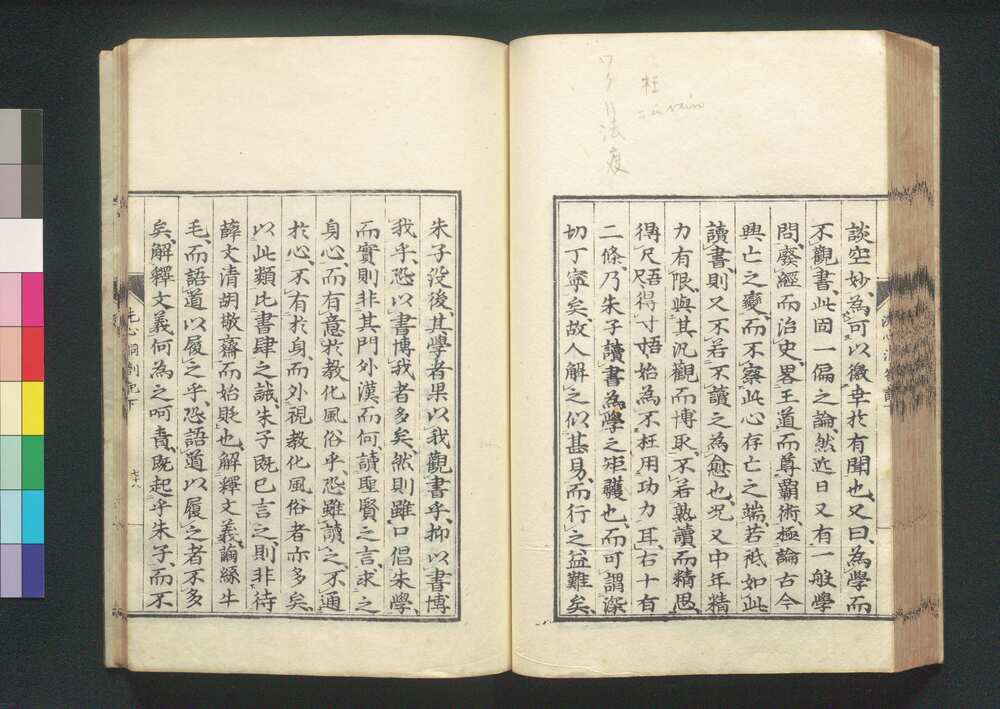 枉
法度
談空妙、為可以徼幸於有聞也、又曰、為學而
不觀書、此固一偏之論、然近日又有一般學
問、廢經而治史、畧王道而尊霸術、極論古今
興亡之變、而不察此心存亡之端、若祗如此
讀書、則又不若不讀之為愈也、况又中年精
力有限、與其汎觀而博取、不若熟讀而精思、
得尺吾得寸、吾始為不枉用功力耳、右十有
二條、乃朱子讀書為學之矩矱也、而可謂深
切丁寧矣、故人解之似甚易、而行之益難矣、
朱子沒後、其學者果以我觀書乎、抑以書博
我乎、恐以書博我者多矣、然則雖口倡朱學、
而實則非其門外漢而何、讀聖賢之言、求之
身心、而有意於教化風俗乎、恐雖讀之不通
於心、不有於身、而外視教化風俗者亦多矣、
以此類比書肆之誠、朱子既已言之、則非待
薛文清胡敬齋而始貶也、解釋文義、繭絲牛
毛、而語道以履之乎、恐語道以履之者不多
矣、解釋文義何為之呵責、既起乎朱子、而不
洗心洞劄記下